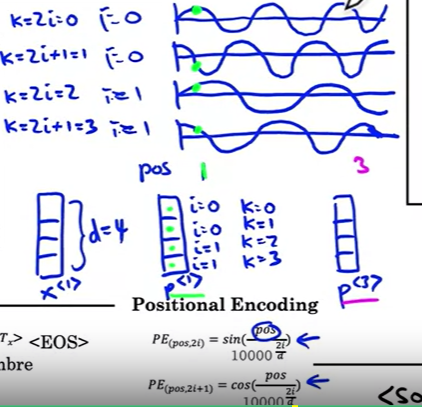 k=2i=0 i=0
k=2i+1=1 i=0
k=2i=2 i=1
k=2i+1=3 i=1
pos 1 3
d=4
i=0 k=0
i=0 k=1
i=1 k=2
i=1 k=3
x<1> p<1> p<3>
Positional Encoding
Tx> <EOS>
mbre
PE(pos,2i) = sin(pos/10000^(2i/d))
PE(pos,2i+1) = cos(pos/10000^(2i/d))
<SO